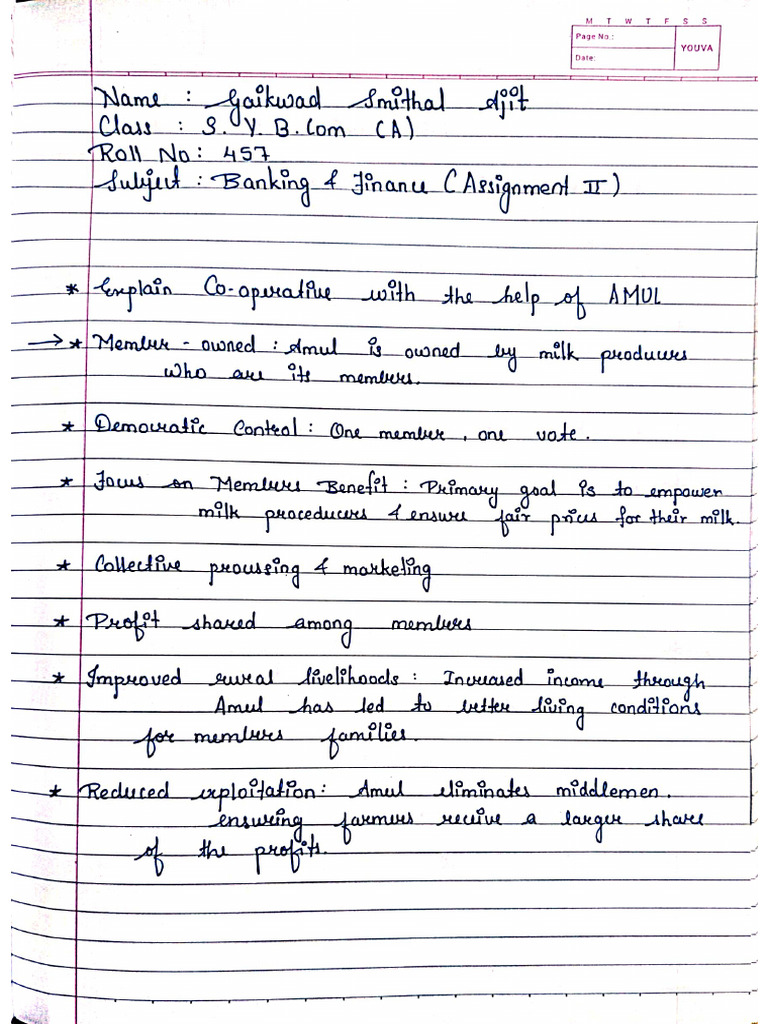 M T W T F S S
Page No.:
YOUVA
Date:
Name : Gaikwad Smithal Ajit
Class : S. Y. B.Com (A)
Roll No: 457
Subject : Banking & Finance (Assignment II)
* Explain Co-operative with the help of AMUL
→ * Member - owned : Amul is owned by milk producers
who are its members.
* Democratic Control : One member, one vote.
* Focus on Members Benefit : Primary goal is to empower
milk proceducers & ensure fair prices for their milk.
* Collective processing & marketing
* Profit shared among members
* Improved rural livelihoods : Increased income through
Amul has led to better living conditions
for members families.
* Reduced exploitation: Amul eliminates middlemen.
ensuring farmers receive a larger share
of the profits.